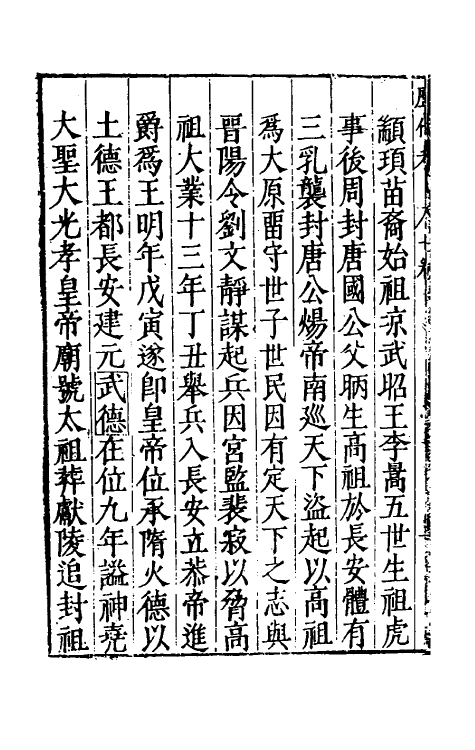 顓頊苗裔始祖凉武昭王李暠五世生祖虎
事後周封唐國公父昞生高祖於長安體有
三乳襲封唐公煬帝南廵天下盜起以高祖
爲大原畱守世子世民因有定天下之志與
晉陽令劉文靜謀起兵因宮監裴寂以脅高
祖大業十三年丁丑舉兵入長安立恭帝進
爵爲王明年戊寅遂卽皇帝位承隋火德以
土德王都長安建元武德在位九年謚神堯
大聖大光孝皇帝廟號太祖葬獻陵追封祖